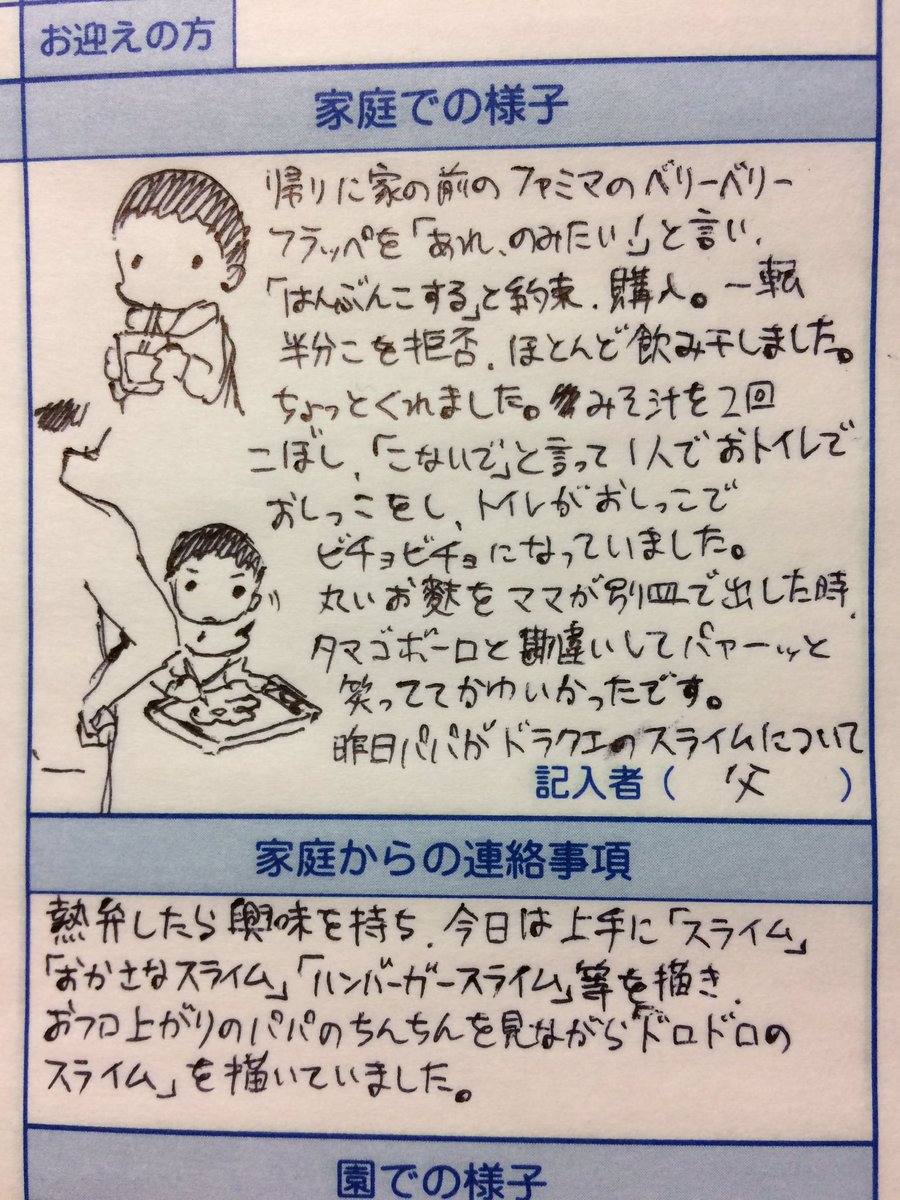 お迎えの方
家庭での様子
帰りに家の前のファミマのベリーベリー
フラッペを「あれ、のみたい!」と言い、
「はんぶんこする」と約束、購入。一転
半分こを拒否、ほとんど飲み干しました。
ちょっとくれました。みそ汁を2回
こぼし、「こないで」と言って1人でおトイレで
おしっこをし、トイレがおしっこで
ビチョビチョになっていました。
丸いお麩をママが別皿で出した時、
タマゴボーロと勘違いしてパァーッと
笑っててかゆいかったです。
昨日パパがドラクエのスライムについて
記入者( 父 )
家庭からの連絡事項
熱弁したら興味を持ち、今日は上手に「スライム」
「おかさなスライム」「ハンバーガースライム」等を描き、
お風呂上がりのパパのちんちんを見ながら「ドロドロの
スライム」を描いていました。
園での様子